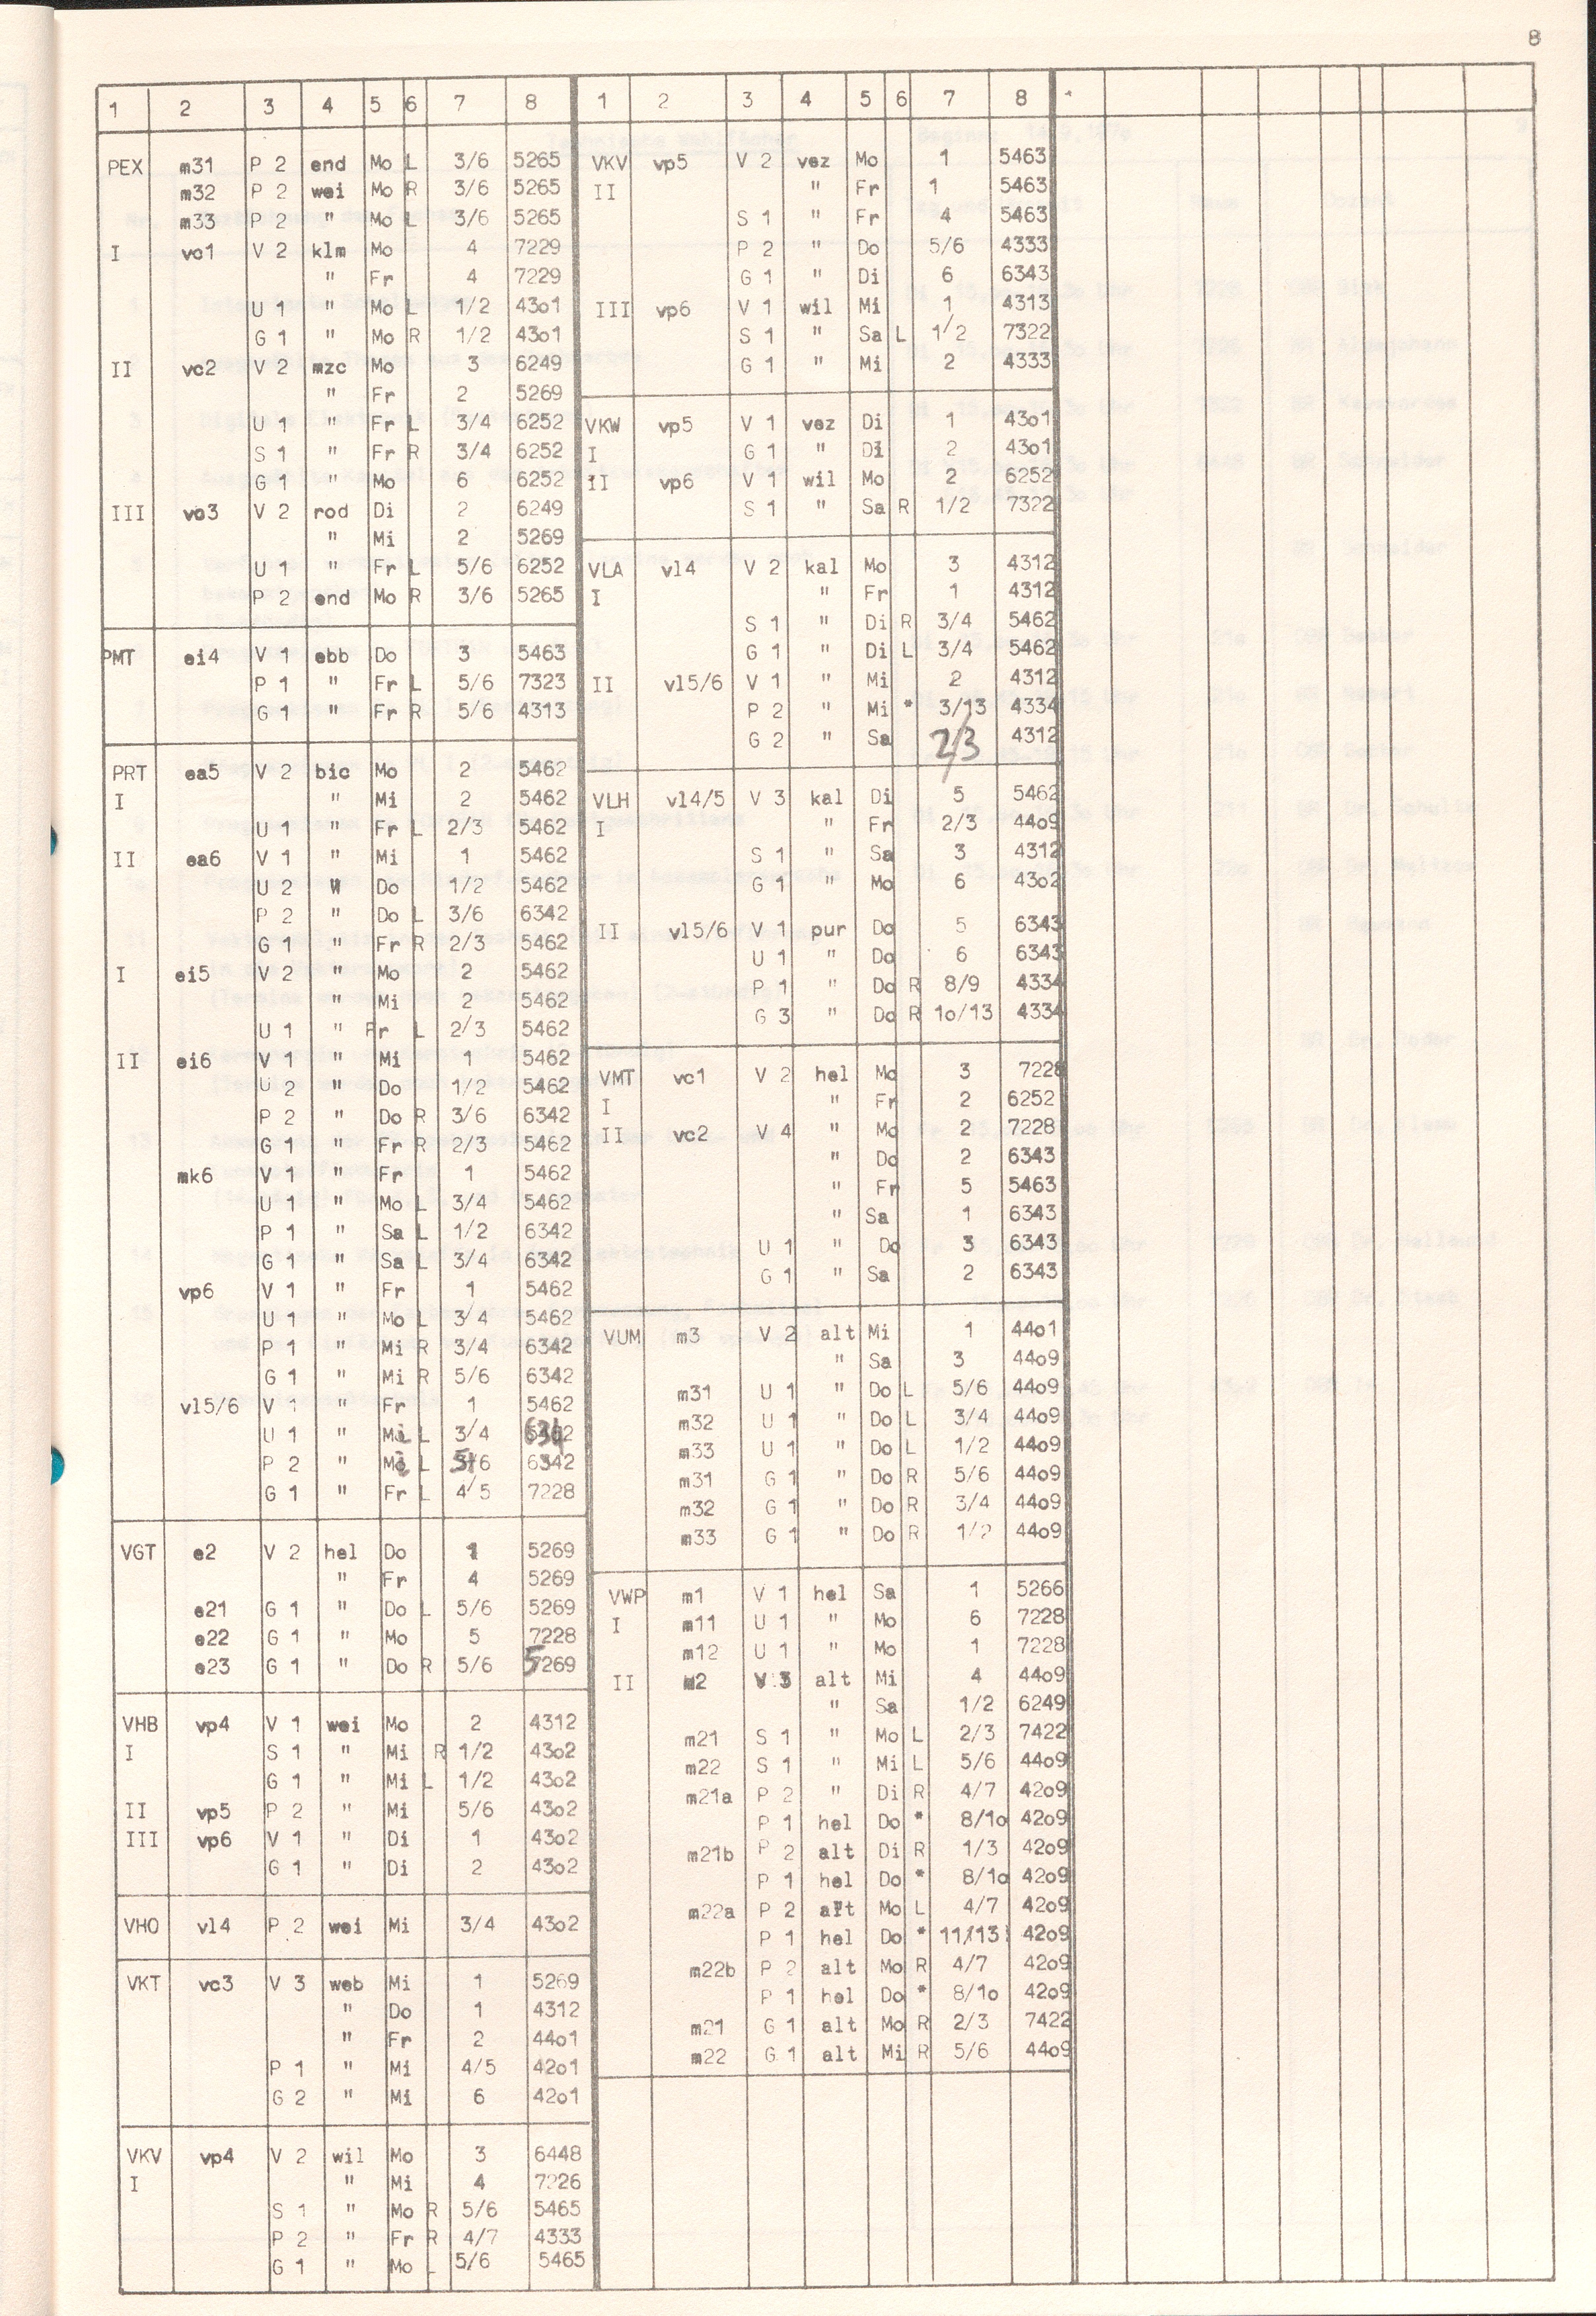 8
1 2 3 4 5 6 7 8
PEX m31 P 2 end Mo L 3/6 5265
m32 P 2 wei Mo R 3/6 5265
m33 P 2 " Mo L 3/6 5265
I vc1 V 2 klm Mo 4 7229
" Fr 4 7229
U 1 " Mo L 1/2 43o1
G 1 " Mo R 1/2 43o1
II vc2 V 2 mzc Mo 3 6249
" Fr 2 5269
U 1 " Fr L 3/4 6252
S 1 " Fr R 3/4 6252
G 1 " Mo 6 6252
III vc3 V 2 rod Di 2 6249
" Mi 2 5269
U 1 " Fr L 5/6 6252
P 2 end Mo R 3/6 5265
PMT ei4 V 1 ebb Do 3 5463
P 1 " Fr L 5/6 7323
G 1 " Fr R 5/6 4313
PRT ea5 V 2 bic Mo 2 5462
I " Mi 2 5462
U 1 " Fr L 2/3 5462
II ea6 V 1 " Mi 1 5462
U 2 " Do 1/2 5462
P 2 " Do L 3/6 6342
G 1 " Fr R 2/3 5462
I ei5 V 2 " Mo 2 5462
" Mi 2 5462
U 1 " Fr L 2/3 5462
II ei6 V 1 " Mi 1 5462
U 2 " Do 1/2 5462
P 2 " Do R 3/6 6342
G 1 " Fr R 2/3 5462
mk6 V 1 " Fr 1 5462
U 1 " Mo L 3/4 5462
P 1 " Sa L 1/2 6342
G 1 " Sa L 3/4 6342
vp6 V 1 " Fr 1 5462
U 1 " Mo L 3/4 5462
P 1 " Mi R 3/4 6342
G 1 " Mi R 5/6 6342
vl5/6 V 1 " Fr 1 5462
U 1 " Mi L 3/4
P 2 " Mi L 5/6 6342
G 1 " Fr L 4/5 7228
VGT e2 V 2 hel Do 1 5269
" Fr 4 5269
e21 G 1 " Do L 5/6 5269
e22 G 1 " Mo 5 7228
e23 G 1 " Do R 5/6 5269
VHB vp4 V 1 wei Mo 2 4312
I S 1 " Mi R 1/2 43o2
G 1 " Mi L 1/2 43o2
II vp5 P 2 " Mi 5/6 43o2
III vp6 V 1 " Di 1 43o2
G 1 " Di 2 43o2
VHO vl4 P 2 wei Mi 3/4 43o2
VKT vc3 V 3 web Mi 1 5269
" Do 1 4312
" Fr 2 44o1
P 1 " Mi 4/5 42o1
G 2 " Mi 6 42o1
VKV vp4 V 2 wil Mo 3 6448
I " Mi 4 7226
S 1 " Mo R 5/6 5465
P 2 " Fr R 4/7 4333
G 1 " Mo L 5/6 5465
1 2 3 4 5 6 7 8
VKV vp5 V 2 vez Mo 1 5463
II " Fr 1 5463
S 1 " Fr 4 5463
P 2 " Do 5/6 4333
G 1 " Di 6 6343
III vp6 V 1 wil Mi 1 4313
S 1 " Sa L 1/2 7322
G 1 " Mi 2 4333
VKW vp5 V 1 vez Di 1 43o1
I G 1 " Di 2 43o1
II vp6 V 1 wil Mo 2 6252
S 1 " Sa R 1/2 7322
VLA vl4 V 2 kal Mo 3 4312
I " Fr 1 4312
S 1 " Di R 3/4 5462
G 1 " Di L 3/4 5462
II vl5/6 V 1 " Mi 2 4312
P 2 " Mi * 3/13 4334
G 2 " Sa 2/3 4312
VLH vl4/5 V 3 kal Di 5 5462
I " Fr 2/3 44o9
S 1 " Sa 3 4312
G 1 " Mo 6 43o2
II vl5/6 V 1 pur Do 5 6343
U 1 " Do 6 6343
P 1 " Do R 8/9 4334
G 3 " Do R 1o/13 4334
VMT vc1 V 2 hel Mo 3 7228
I " Fr 2 6252
II vc2 V 4 " Mo 2 7228
" Do 2 6343
" Fr 5 5463
" Sa 1 6343
U 1 " Do 3 6343
G 1 " Sa 2 6343
VUM m3 V 2 alt Mi 1 44o1
" Sa 3 44o9
m31 U 1 " Do L 5/6 44o9
m32 U 1 " Do L 3/4 44o9
m33 U 1 " Do L 1/2 44o9
m31 G 1 " Do R 5/6 44o9
m32 G 1 " Do R 3/4 44o9
m33 G 1 " Do R 1/2 44o9
VWP m1 V 1 hel Sa 1 5266
I m11 U 1 " Mo 6 7228
m12 U 1 " Mo 1 7228
II m2 V 3 alt Mi 4 44o9
" Sa 1/2 6249
m21 S 1 " Mo L 2/3 7422
m22 S 1 " Mi L 5/6 44o9
m21a P 2 " Di R 4/7 42o9
P 1 hel Do * 8/1o 42o9
m21b P 2 alt Di R 1/3 42o9
P 1 hel Do * 8/1o 42o9
m22a P 2 alt Mo L 4/7 42o9
P 1 hel Do * 11/13 42o9
m22b P 2 alt Mo R 4/7 42o9
P 1 hel Do * 8/1o 42o9
m21 G 1 alt Mo R 2/3 7422
m22 G 1 alt Mi R 5/6 44o9